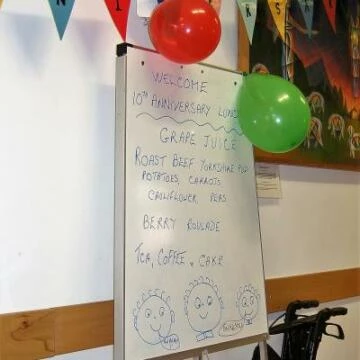 WELCOME
10TH ANNIVERSARY
GRAPE JUICE
ROAST BEEF YORKSHIRE
POTATOES, CARROTS
CAULIFLOWER PEAS
BERRY ROULADE
TEA, COFFEE & CAKE